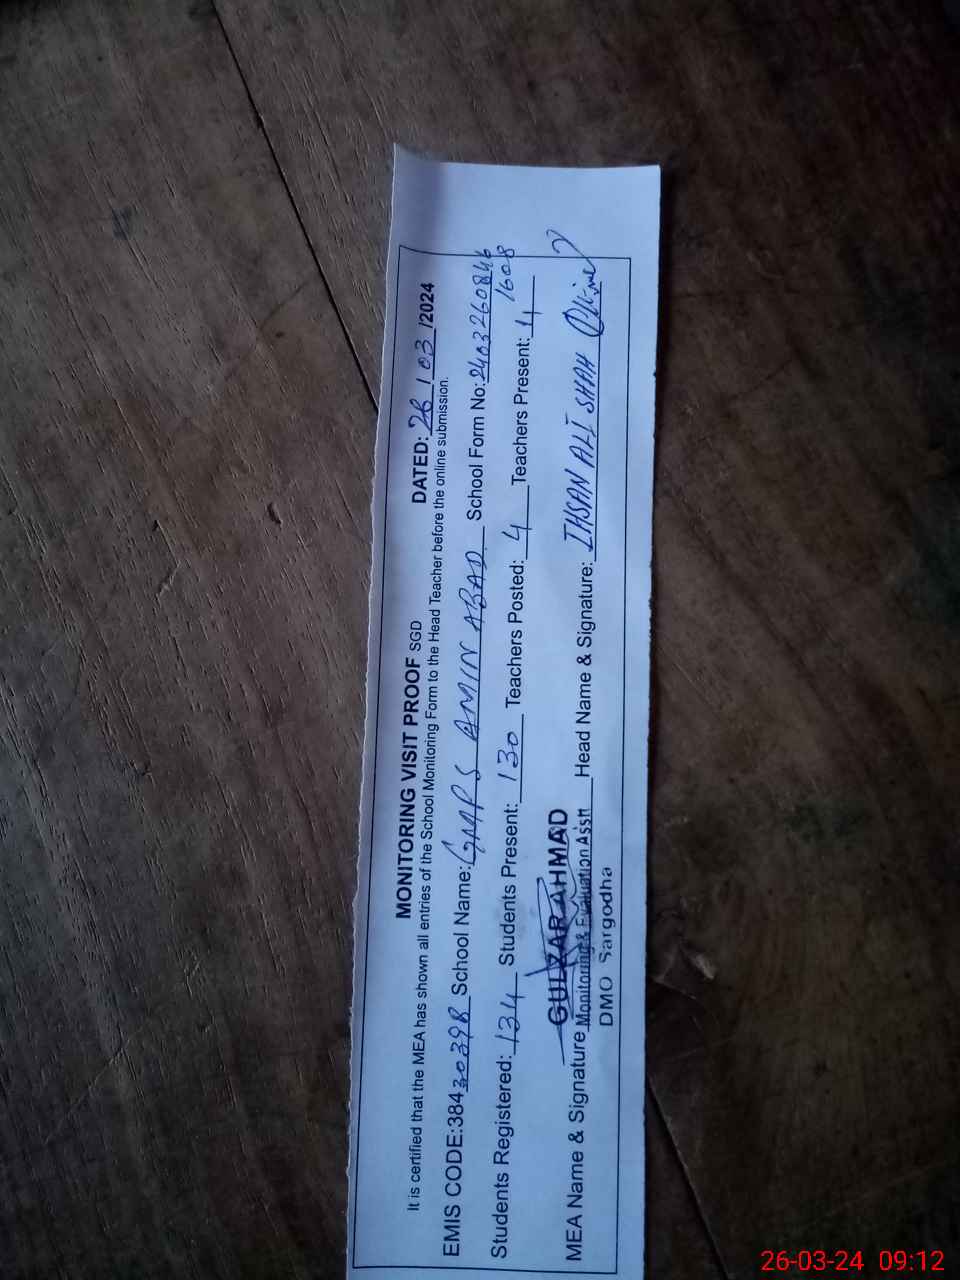 MONITORING VISIT PROOF SGD DATED: 26/03/2024
It is certified that the MEA has shown all entries of the School Monitoring Form to the Head Teacher before the online submission.
EMIS CODE:38430398 School Name: GMPS AMIN ABAD School Form No: 2403260846
1608
Students Registered: 134 Students Present: 130 Teachers Posted: 4 Teachers Present: 4
GULZAR AHMAD
MEA Name & Signature Monitoring & Evaluation Asstt Head Name & Signature: IHSAN ALI SHAH
DMO Sargodha
26-03-24 09:12